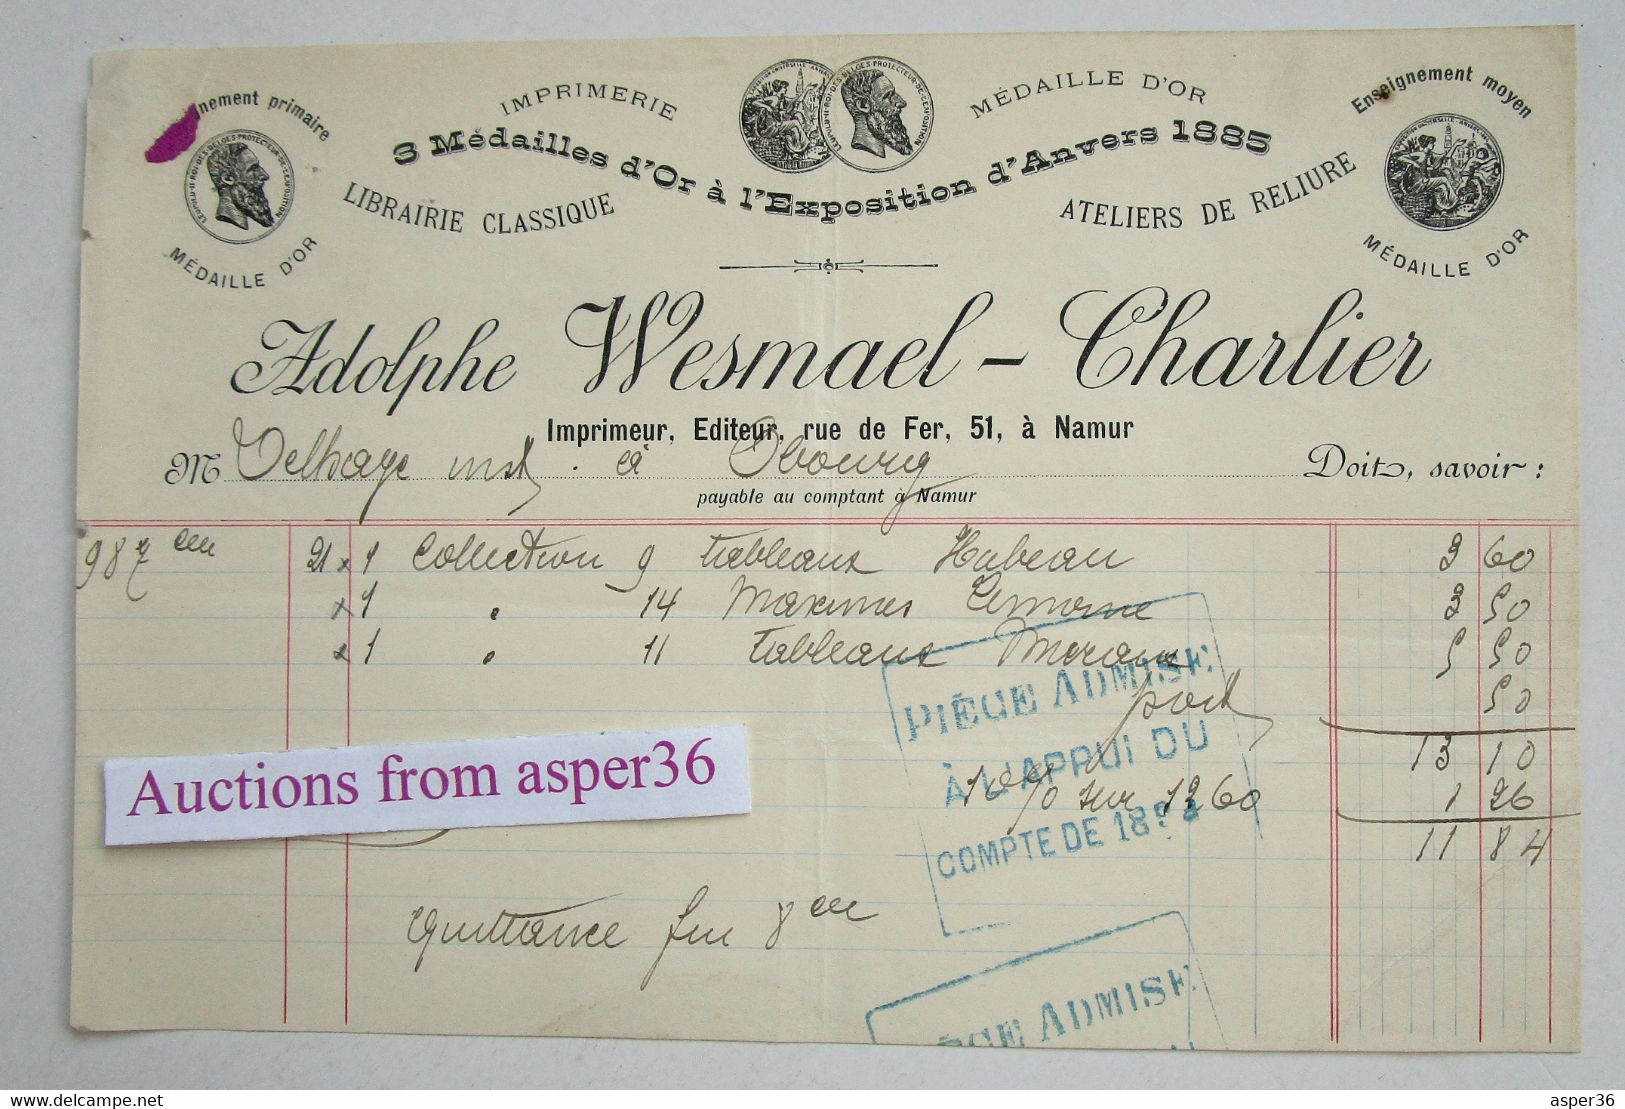 nement primaire
MÉDAILLE D'OR
IMPRIMERIE
MÉDAILLE D'OR
3 Médailles d'Or à l'Exposition d'Anvers 1885
LIBRAIRIE CLASSIQUE
ATELIERS DE RELIURE
Enseignement moyen
MÉDAILLE D'OR
Adolphe Wesmael - Charlier
Imprimeur, Editeur, rue de Fer, 51, à Namur
M Delhaye inst. à Obourg Doit, savoir :
payable au comptant à Namur
987 21 1 Collection 9 tableaux 3 60
1 " 14 Maximes 3 50
1 " 11 tableaux 5 50
port 50
13 10
10% sur 12 60 1 26
11 84
Quittance fin 8
PIÈCE ADMISE
À L'APPUI DU
COMPTE DE 18
PIÈCE ADMISE
Auctions from asper36
www.delcampe.net
asper36